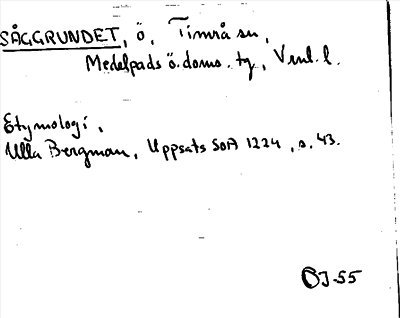 SÅGGRUNDET, ö, Timrå sn,
Medelpads ö. doms. tg, Vnl. l.
Etymologi,
Ulla Bergman, Uppsats SOA 1224, s. 43.
OJ-55